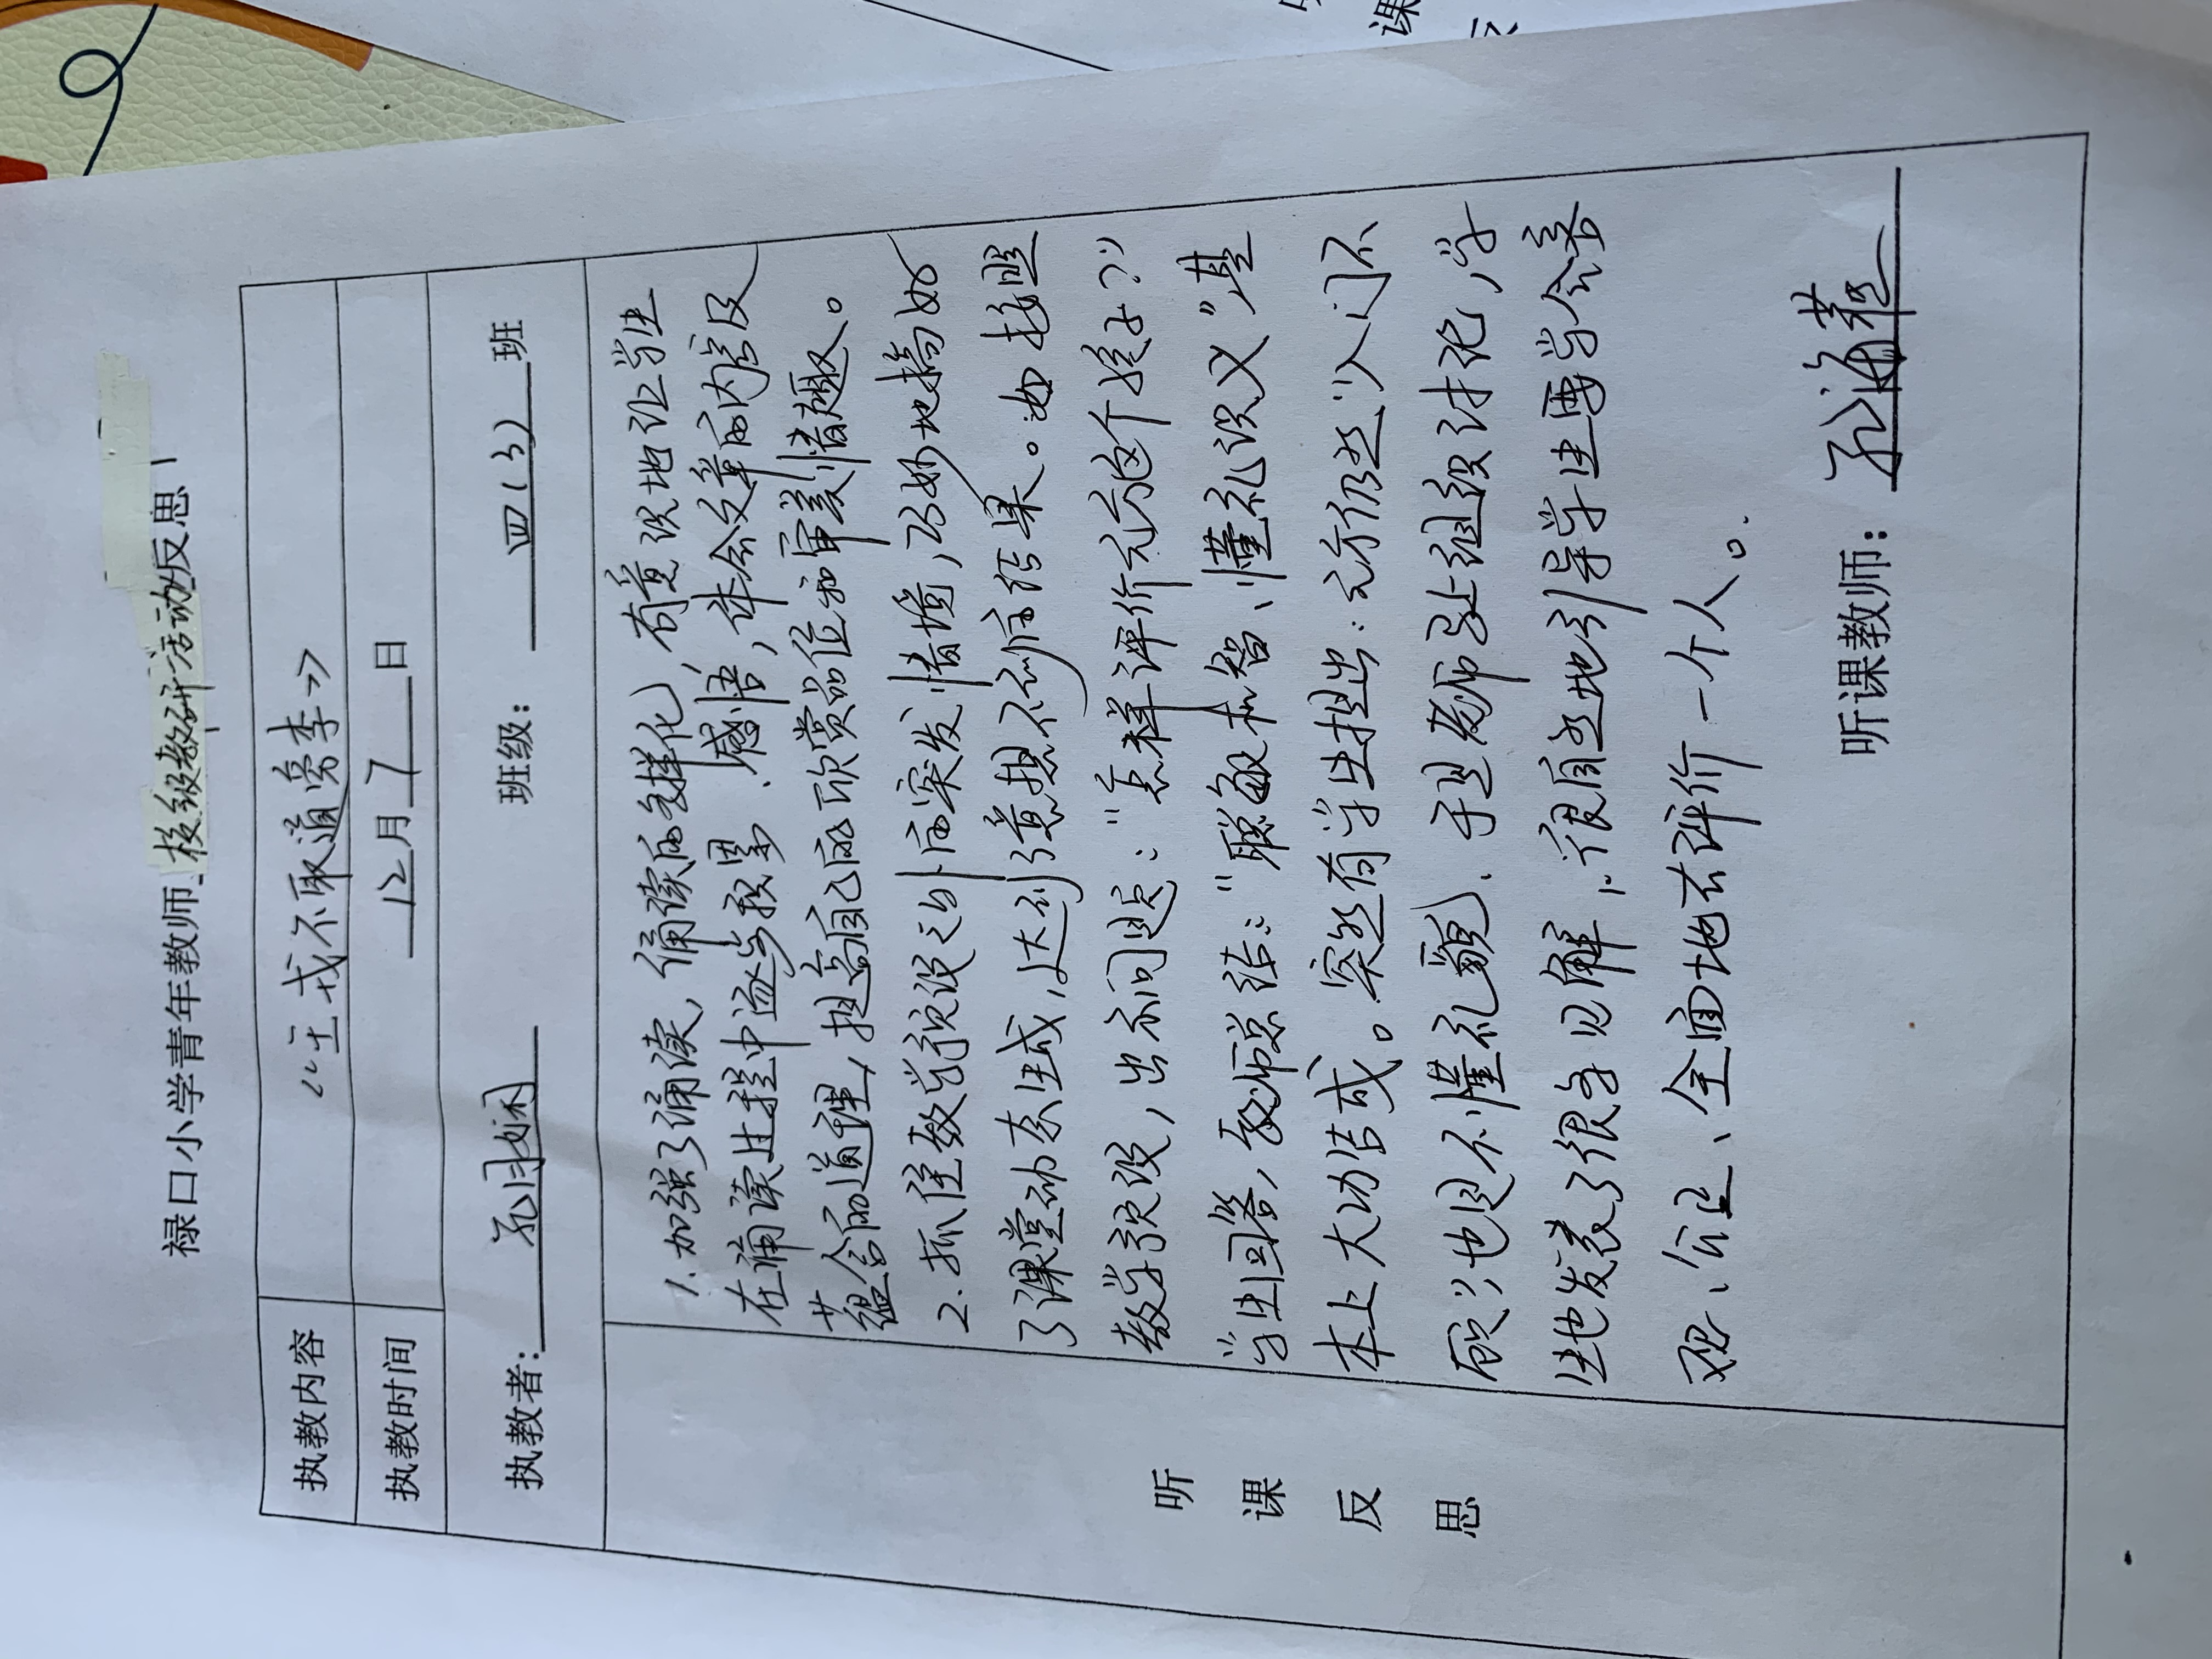 禄口小学青年教师校级教研活动反思
执教内容 《王戎不取道旁李》
执教时间 12月7日
执教者: 孔月娴 班级: 四(3)班
听课反思
1.加强了诵读,诵读的多样化,有意识地让学生
在诵读过程中逐步积累、感悟,体会文章的内容及
蕴含的道理,提高自己的欣赏品位和审美情趣。
2.抓住教学预设之外的突发情境,巧妙地搞好
了课堂动态生成,达到了意想不到的结果。如按照
教学预设,出示问题:“怎样评价元方这个孩子?”
学生回答,教师总结:“聪敏机智、懂礼识义”基
本上大功告成。突然有学生提出:元方仍然“入门不
顾”也是不懂礼貌、于是老师马上组织讨论,学
生也发表了很多见解,很自然地引导学生要学会客
观、公正、全面地去评价一个人。
听课教师: 孔海燕
听
课
反